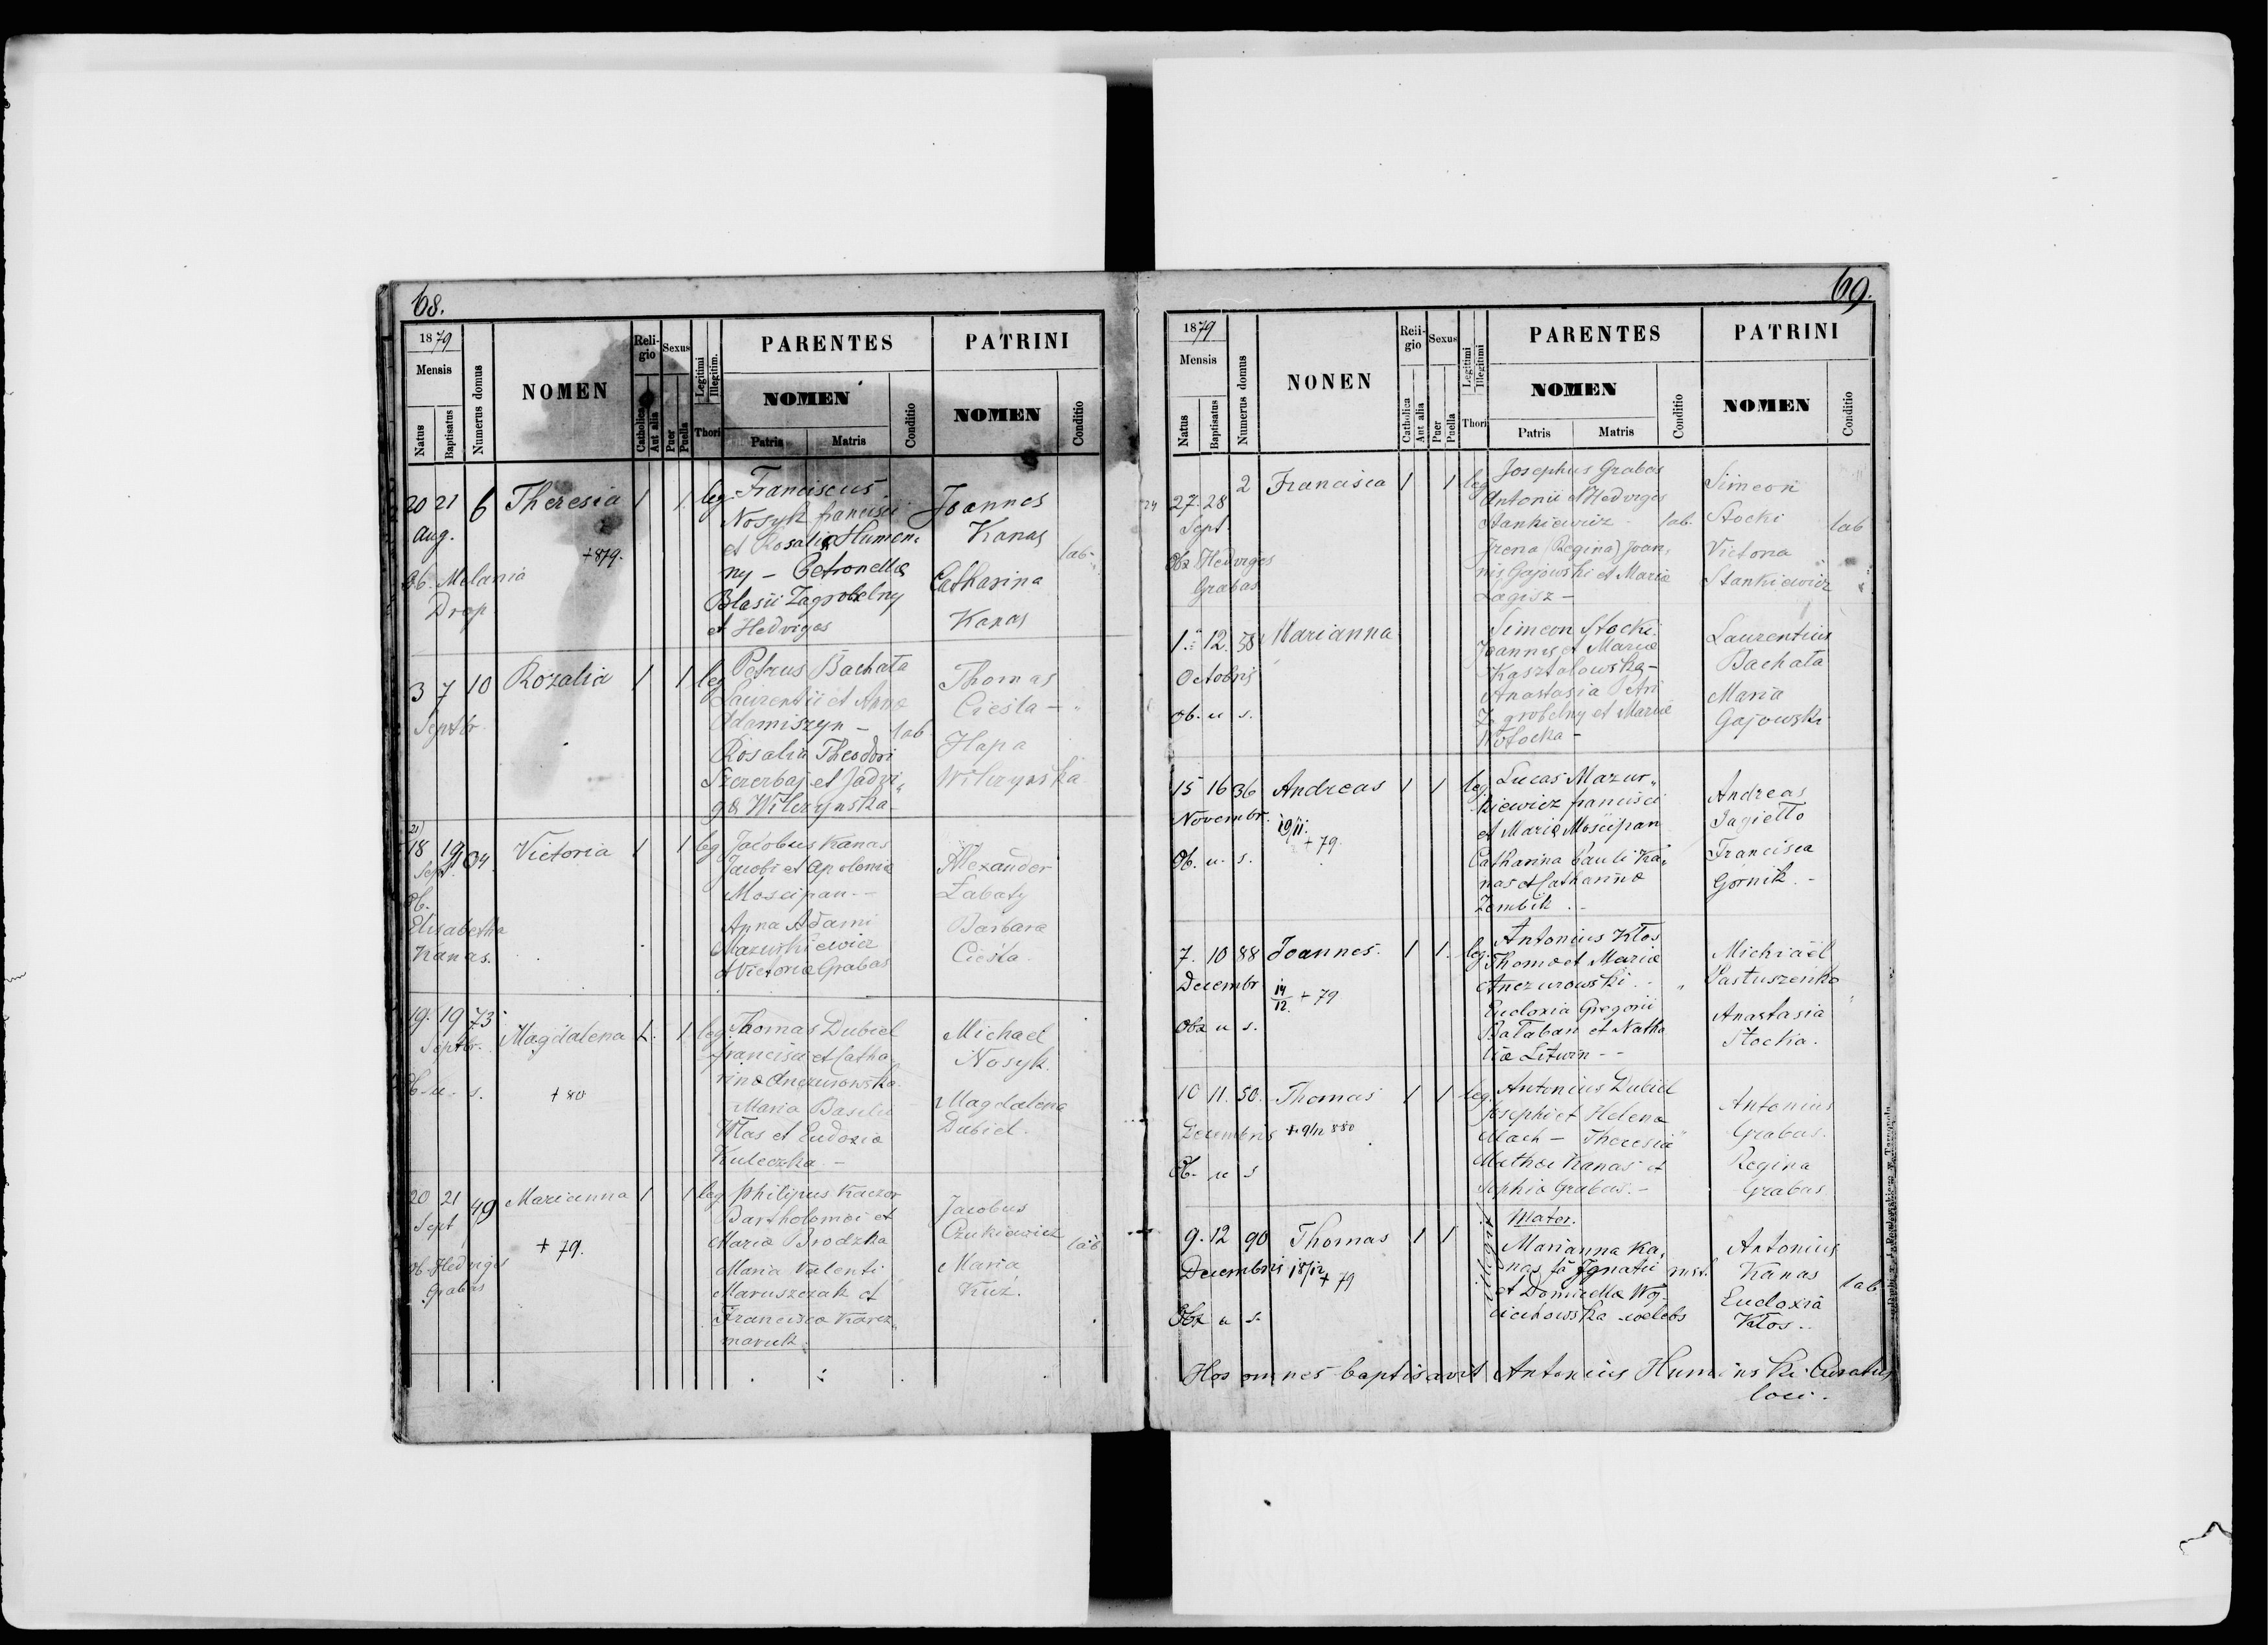 68.
1879
Mensis
Natus
Baptisatus
Numerus domus
NOMEN
Reli-
gio
Catholica
Aut alia
Sexus
Puer
Puella
Legitimi
Illegitim.
Thori
PARENTES
NOMEN
Patris
Matris
Conditio
PATRINI
NOMEN
Conditio
20 21 6 Theresia 1 1 leg
Aug.
+879.
Ob. Melania
Drop
Franciscus
Nosyk francisci
et Rosaliæ Humen,
ny - Petronella
Blasii Zagrobelny
et Hedviges
Joannes
Kanas
lab.
Catharina
Kanas
3 7 10 Rozalia 1 1 leg
Septbr.
Petrus Bachata
Laurentii et Anna
Adamiszyn - lab
Rosalia Theodori
Szczerbaj et Jadzi,,
gæ Wilczynska -
Thomas
Cieśla -
Hapa
Wilczyńska
21)
18 19 104 Victoria 1 1 leg
Sept.
Ob.
Elisabetha
Kanas.
Jacobus Kanas
Jacobi et Apolonia
Moscipan -
Anna Adami
Mazurkiewicz
et Victoria Grabas
Alexander
Łabaty
Barbara
Cieśla.
19. 19 73 Magdalena 1. 1 leg.
Septbr.
Ob. u. s.
+ 80
Thomas Dubiel
francisci et Catha
rinæ Anczurowska
Maria Basilii
Włas et Eudoxia
Kuleczka -
Michael
Nosyk.
Magdalena
Dubiel.
20 21 49 Marianna 1 1 leg
Sept
+ 79.
Ob. Hedviges
Grabas
Philipus Kaczor
Bartholomæi et
Maria Brodzka
Maria Valenti
Maruszczak et
Francisca Karcz,,
maruk.
Jacobus
Czukiewicz
lab
Maria
Kuź.
69.
1879
Mensis
Natus
Baptisatus
Numerus domus
NONEN
Reii-
gio
Catholica
Aut alia
Sexus
Puer
Puella
Legitimi
Illegitimi
Thori
PARENTES
NOMEN
Patris
Matris
Conditio
PATRINI
NOMEN
Conditio
24 27. 28 2 Francisca 1 1 leg
Sept
Obx Hedviges
Grabas
Josephus Grabas
Antonii et Hedviges
Stankiewicz - lab.
Irena (Regina) Joan,
nis Gajowski et Maria
Łagisz -
Simeon
Stocki
lab
Victoria
Stankiewicz
1. 12. 58 Marianna
Octobris
Ob. u s.
Simeon Stocki
Joannis et Maria
Kasztalowska -
Anastasia Petri
Zagrobelny et Mariæ
Laurentius
Bachata
Maria
Gajowska
15 16 36 Andreas 1 1 leg.
Novembr.
19/11.
+ 79.
Ob. u. s.
Lucas Mazur,,
kiewicz francisci
et Maria Mościpan
Catharina Pauli Ka,
nas et Catharina
Zembik . -
Andreas
Jagiełło
Francisca
Gornik. -
7. 10 88 Joannes. 1 1. leg.
Decembr
14/12. + 79
Obx u s.
Antonius Kłos
Thomæ et Maria
Anczurowski. -
Eudoxia Gregorii
Bałaban et Natha
lia Litwin - -
Michiaël
Pastuszenko
Anastasia
Stocka.
10 11. 50. Thomas 1 1 leg.
Decembris + 9/12 880
Ob. u s
Antonius Dubiel
Josephi et Helena
Mach - Theresia
Mathæi Kanas et
Sophia Grabas. -
Antonius
Grabas.
Regina
Grabas
9. 12 90 Thomas 1 1 illegit
Decembris 18/12 + 79
Obx u s.
Mater.
Marianna Ka,
nas fa Ignatii
et Domicella Woj-
ciechowska coelebs
Antonius
Kanas
lab
Eudoxia
Kłos..
Hos omnes baptisavit Antonius Huminski Curatus
loci.